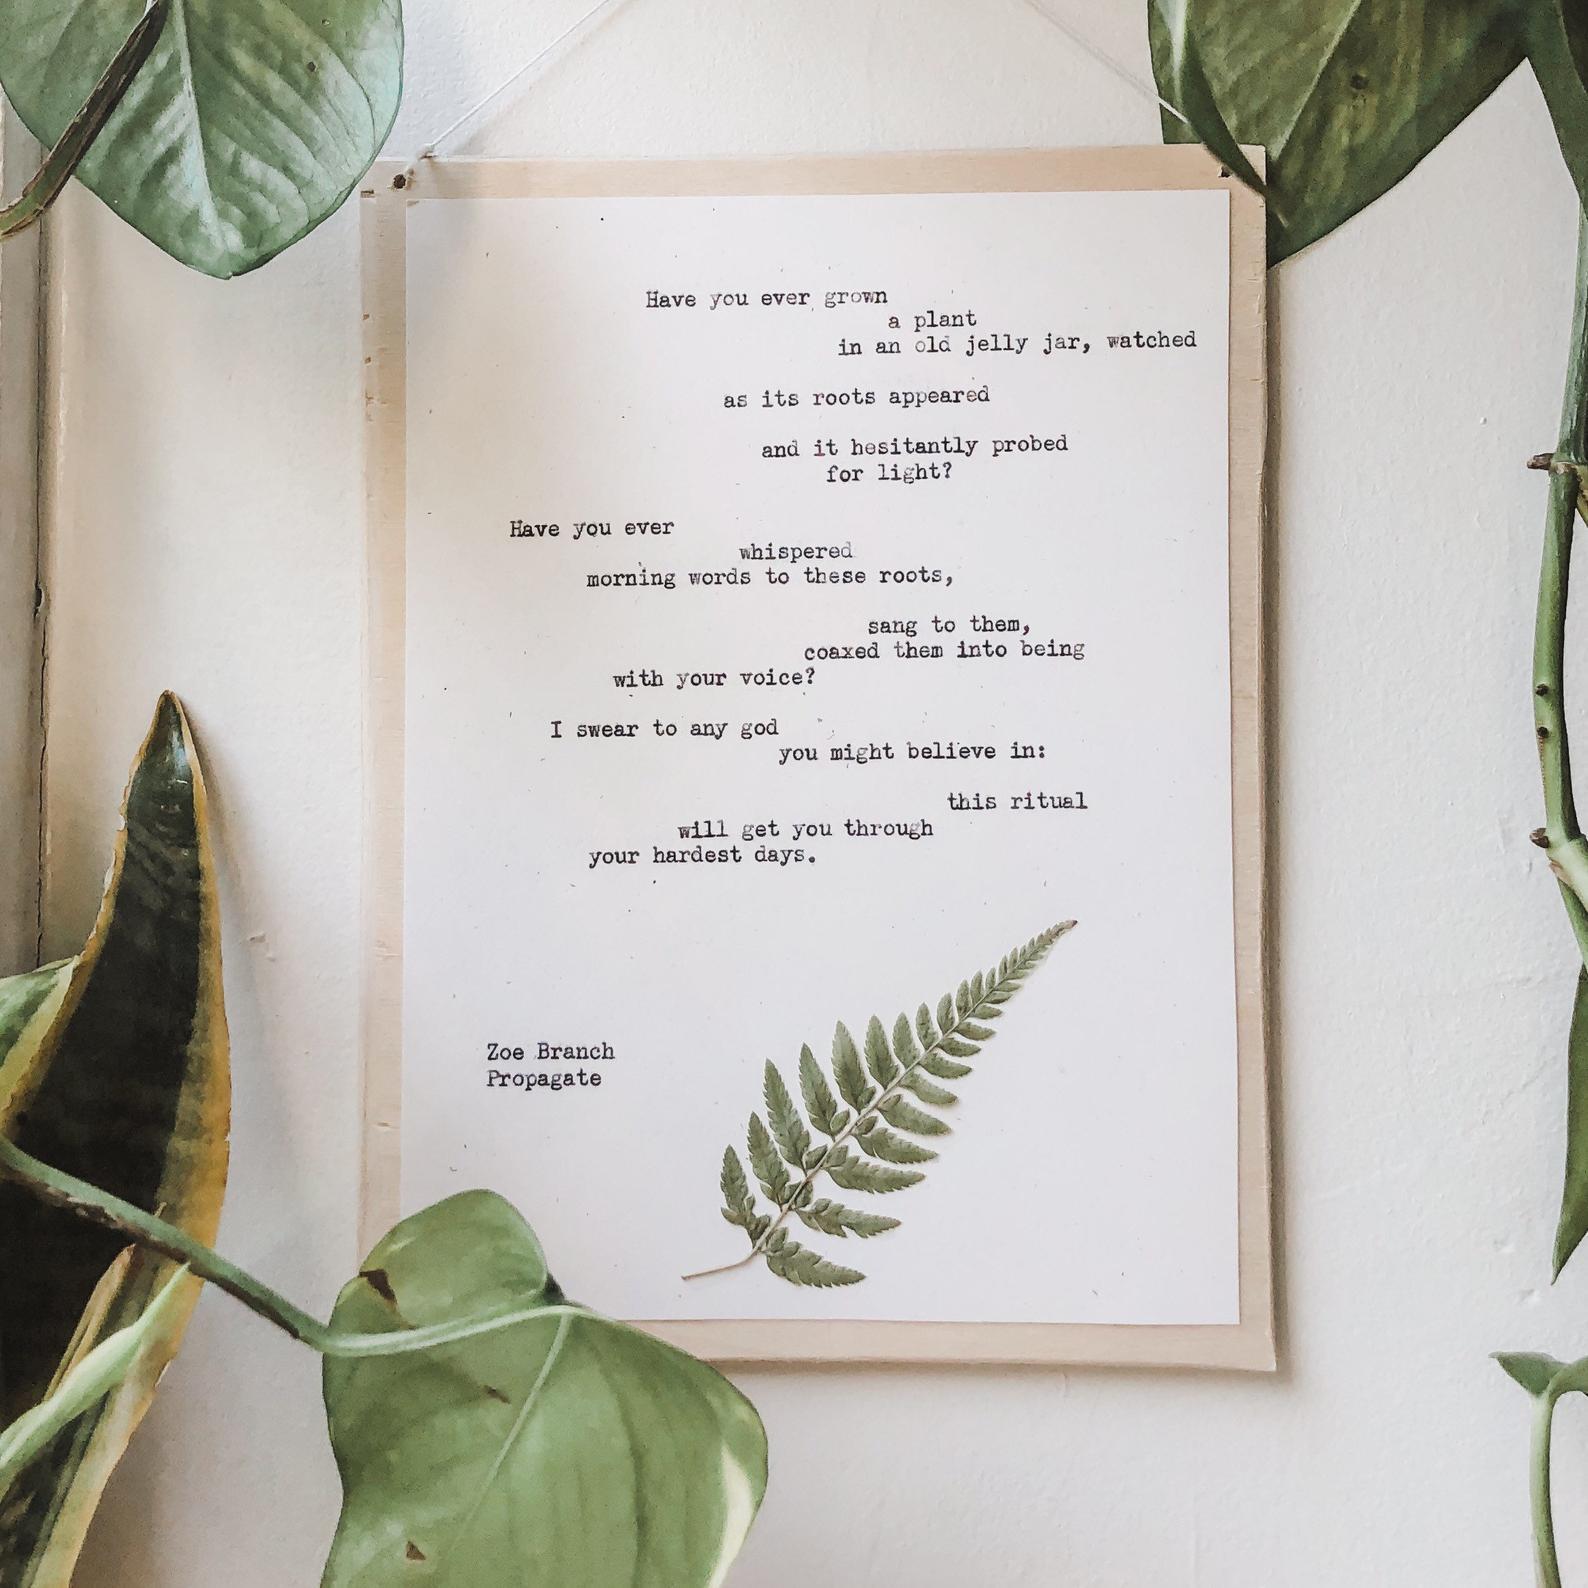 Have you ever grown
a plant
in an old jelly jar, watched
as its roots appeared
and it hesitantly probed
for light?
Have you ever
whispered
morning words to these roots,
sang to them,
coaxed them into being
with your voice?
I swear to any god
you might believe in:
this ritual
will get you through
your hardest days.
Zoe Branch
Propagate